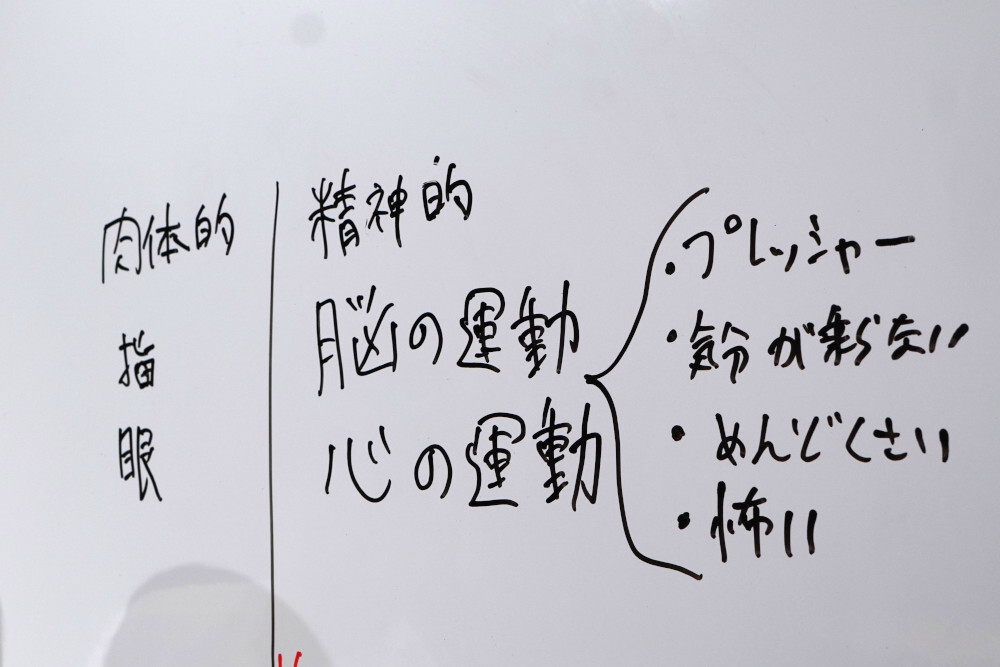 肉体的
描
眼
精神的
脳の運動
心の運動
・プレッシャー
・気分が乗らない
・めんどくさい
・怖い